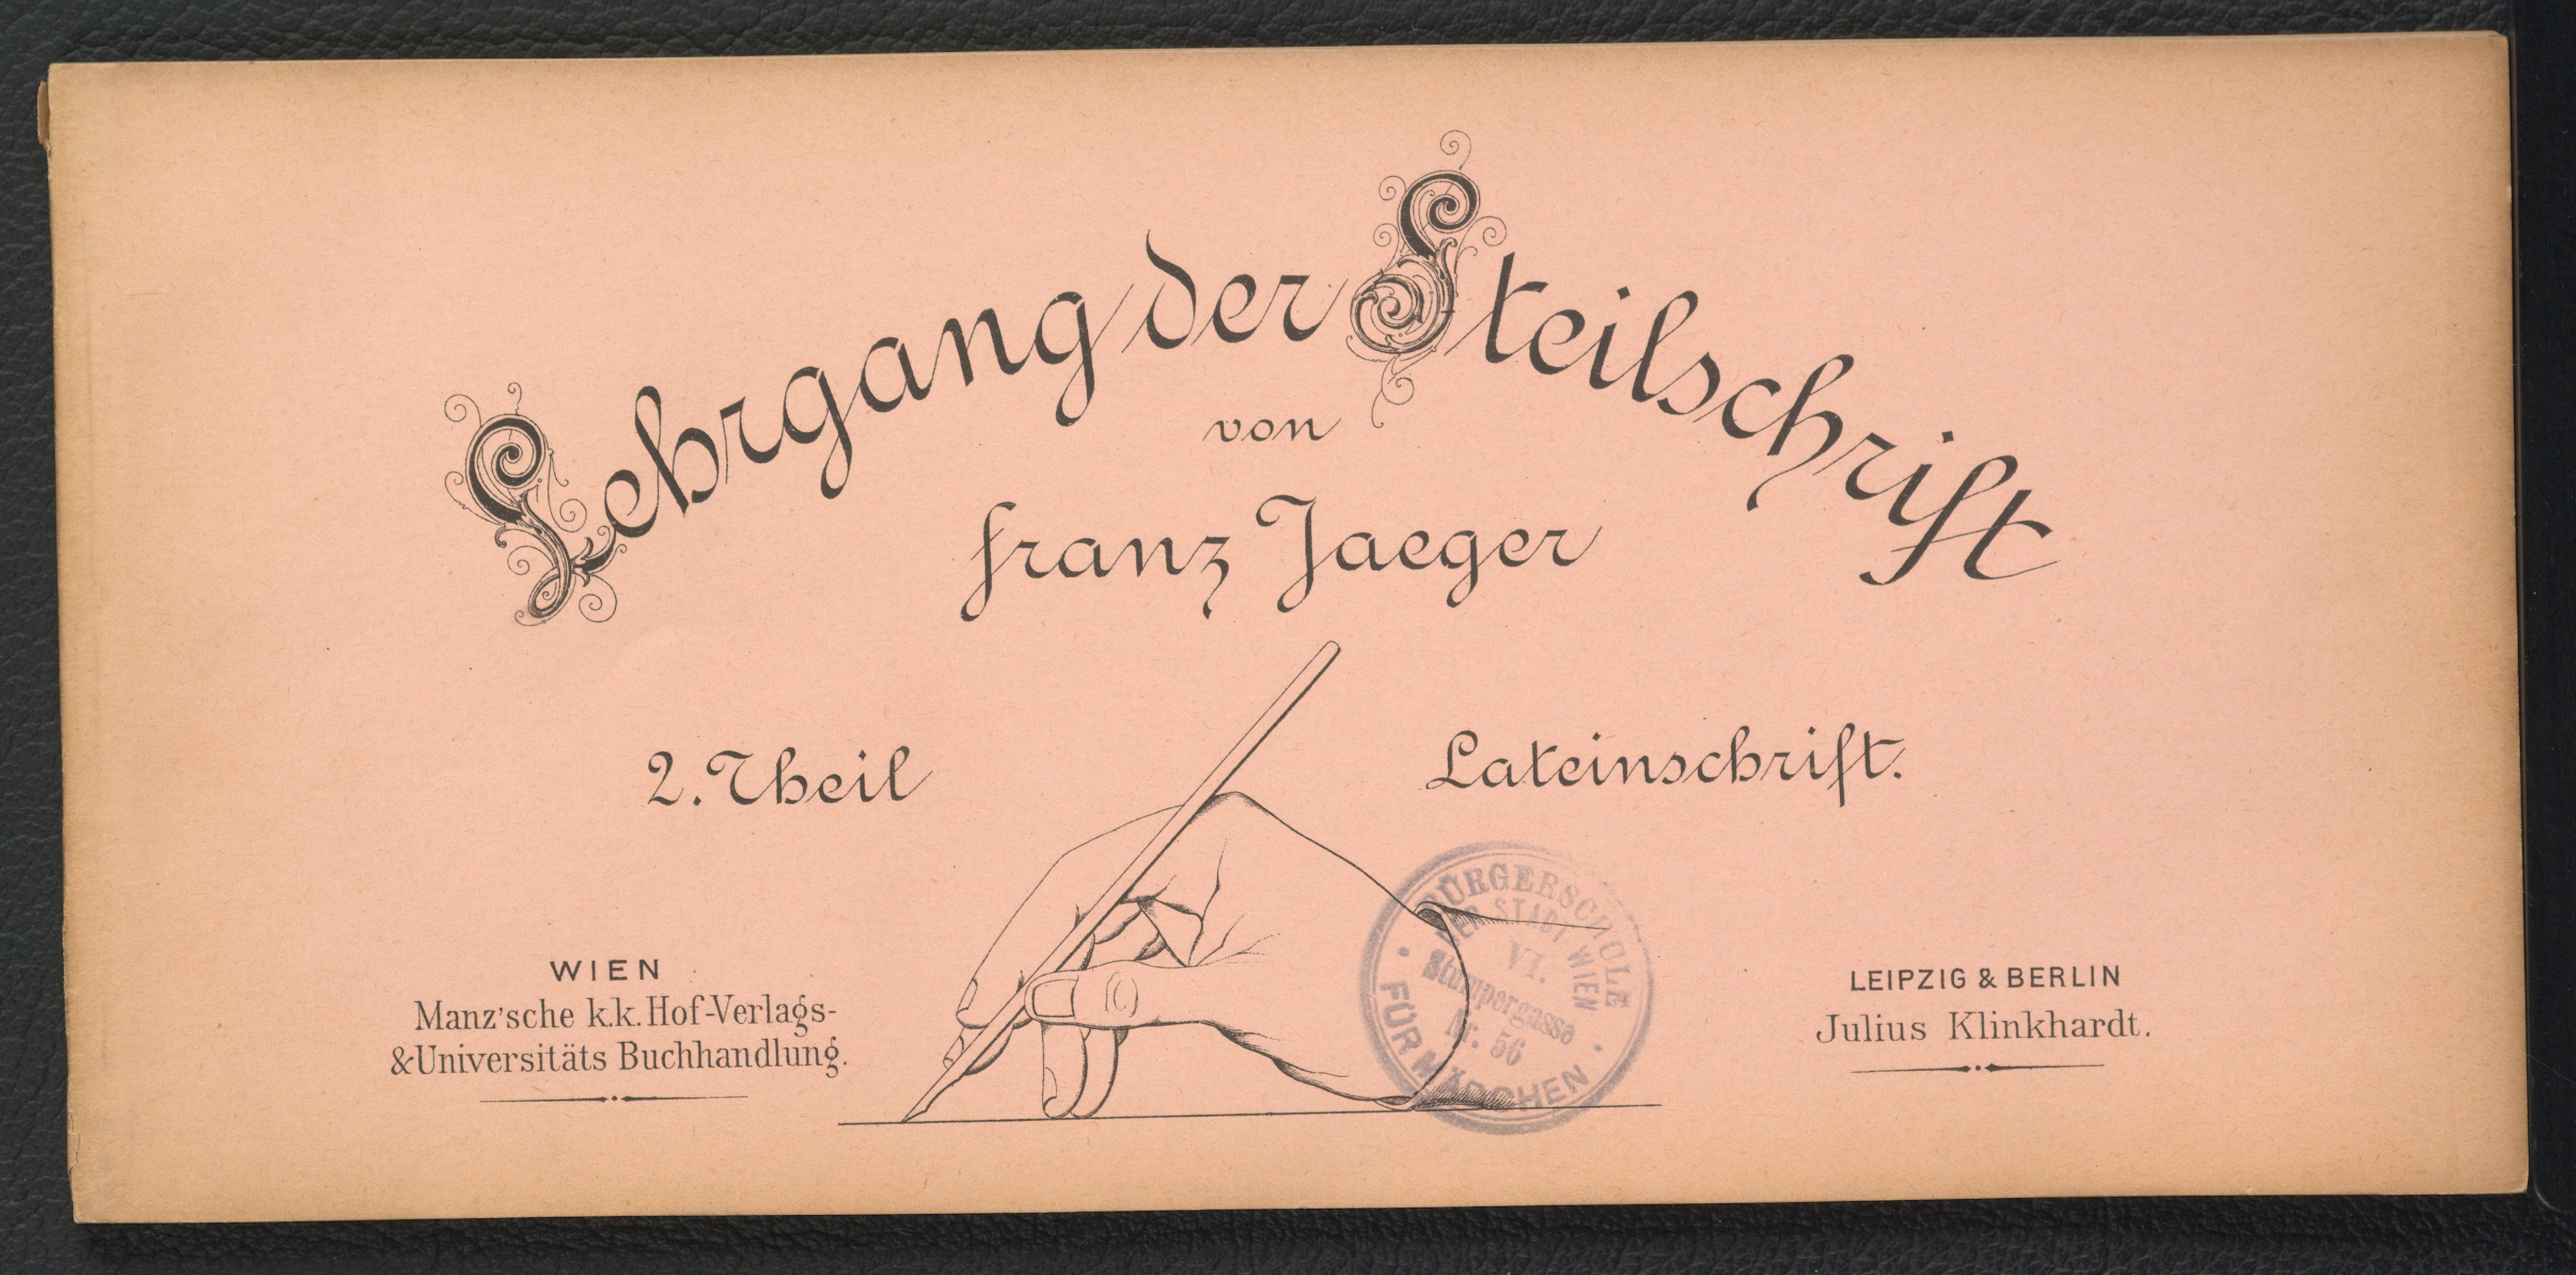 Lehrgang der Steilschrift
von
Franz Jaeger
2. Theil
Lateinschrift.
WIEN
Manz'sche k.k. Hof-Verlags-
& Universitäts Buchhandlung.
LEIPZIG & BERLIN
Julius Klinkhardt.
BÜRGERSCHULE
DER STADT WIEN
VI.
Stumpergasse
Nr. 56
FÜR MÄDCHEN